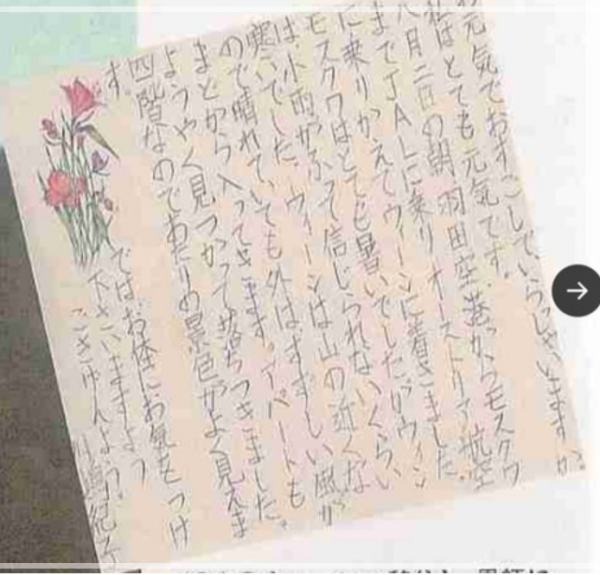 お元気でおすごしでいらっしゃいますか。
私はとても元気です。
八月二日の朝、羽田空港からモスクワ
までJALに乗り、オーストリア航空
に乗りかえてウィーンに着きました。
モスクワはとても暑いでしたがウィーン
は小雨がふって信じられないくらい
寒いでした。ウィーンは山の近くな
ので晴れていても外はすずしい風が
まどから入ってきます。アパートも
ようやく見つかって落ちつきました。
四階なのであたりの景色がよく見えま
す。
ではお体にお気をつけ
下さいますよう
ごきげんよう。
川嶋紀子